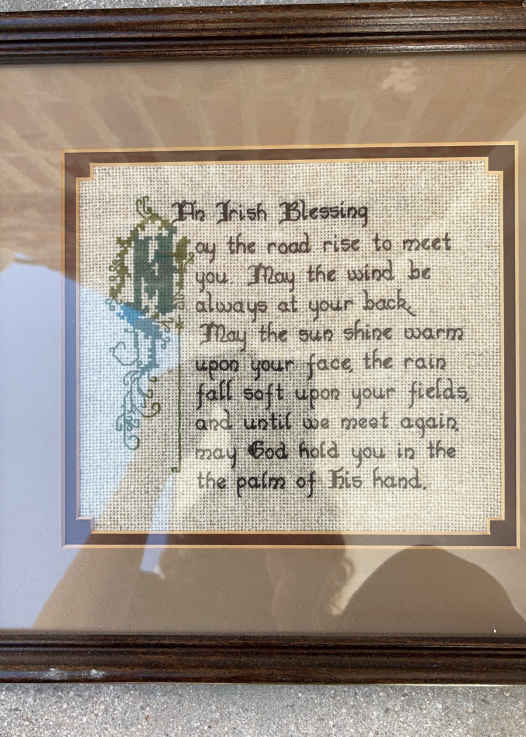 An Irish Blessing
May the road rise to meet
you. May the wind be
always at your back,
May the sun shine warm
upon your face, the rain
fall soft upon your fields,
and until we meet again,
may God hold you in the
the palm of His hand.